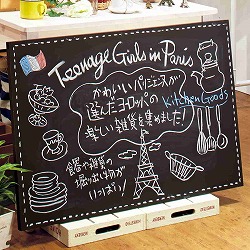 Teenage Girls in Paris
かわいいパリジェンヌが
選んだヨーロッパの
Kitchen Goods
楽しい雑貨を集めました!
食器や雑貨の
掘り出しものが
いっぱい!